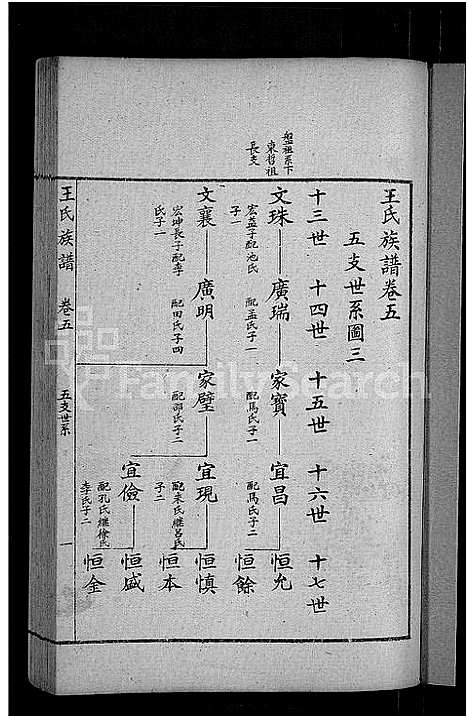 盤祖系下
東哲祖
長支
王氏族譜卷五
五支世系圖三
十三世 十四世 十五世 十六世 十七世
文珠 廣瑞 家寶 宜昌 恒允
宏益子配池氏
子一
配孟氏子一
配馬氏子一
配馬氏子二
恒餘
文襄 廣明 家璧 宜現 恒慎
宏坤長子配李
氏子一
配田氏子四
配邵氏子二
配來氏繼呂氏
子二
恒本
宜儉 恒盛
配孔氏繼徐氏
李氏子二
恒金
王氏族譜 卷五 五支世系 一
FamilySearch